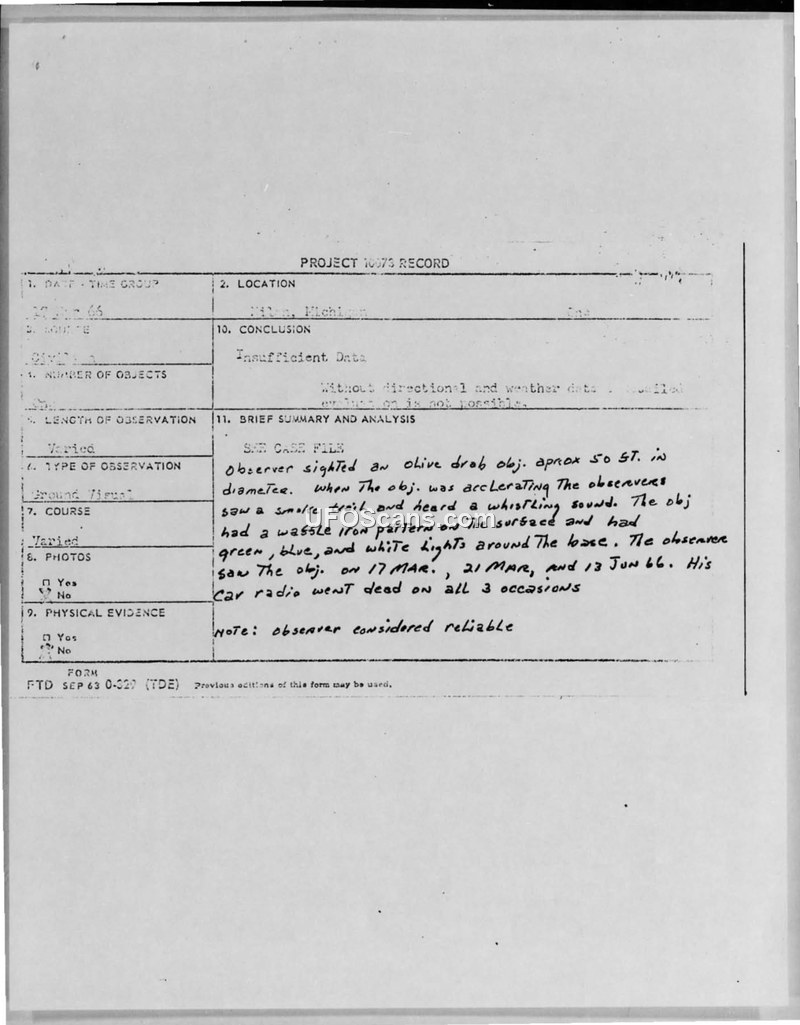 PROJECT 10073 RECORD
1. DATE - TIME GROUP
2. LOCATION
17 Mar 66
Milan, Michigan
3. SOURCE
10. CONCLUSION
Civilian
Insufficient Data
4. NUMBER OF OBJECTS
Without directional and weather data a detailed
evaluation is not possible.
5. LENGTH OF OBSERVATION
11. BRIEF SUMMARY AND ANALYSIS
Varied
SEE CASE FILE
6. TYPE OF OBSERVATION
Observer sighted an olive drab obj. aprox 50 ft. in
diameter. When The obj. was acclerating The observers
Ground Visual
saw a smoke trail and heard a whistling sound. The obj
7. COURSE
had a waffle iron pattern on surface and had
Varied
green, blue, and white lights around The base. The observer
8. PHOTOS
saw The obj. on 17 MAR., 21 MAR, and 13 Jun 66. His
Yes
No
Car radio went dead on all 3 occasions
9. PHYSICAL EVIDENCE
Yes
No
NOTE: observer considered reliable
FORM
FTD SEP 63 0-329 (TDE) Previous editions of this form may be used.
UFOScans.com